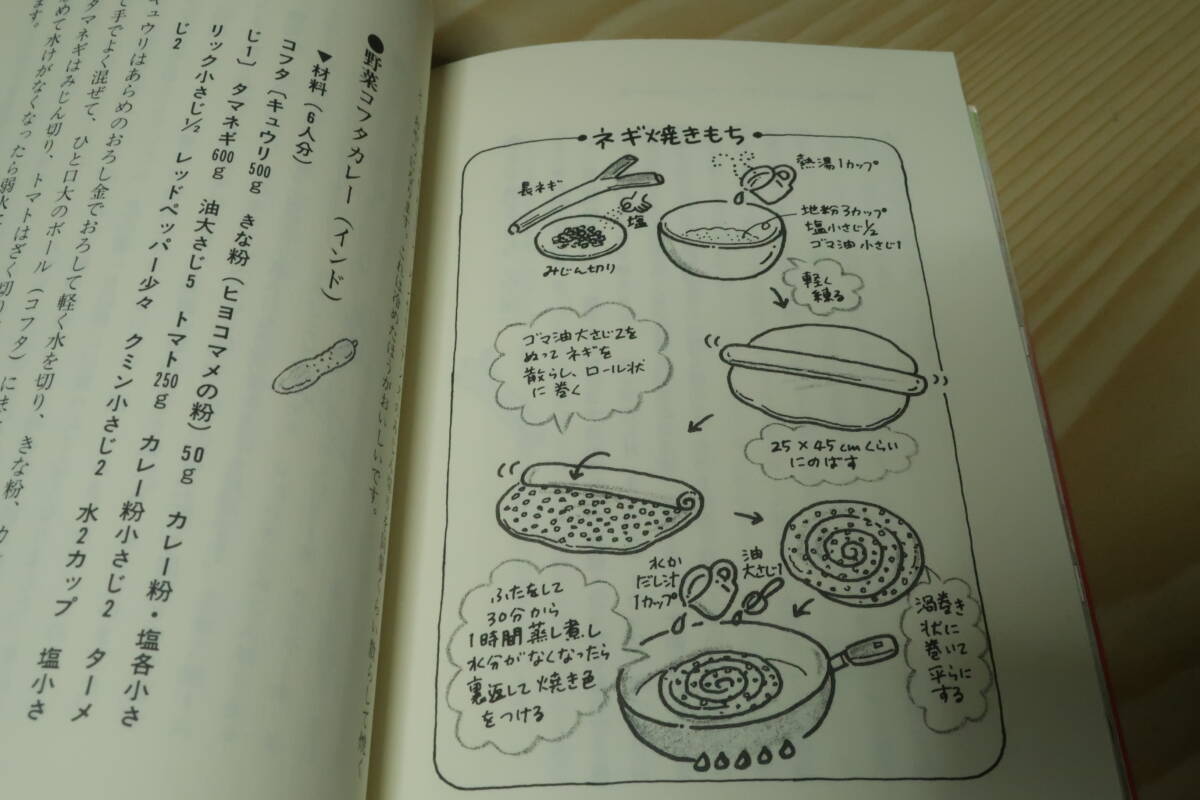 ネギ焼きもち
長ネギ
塩
みじん切り
熱湯1カップ
地粉3カップ
塩小さじ1/2
ゴマ油 小さじ1
軽く
練る
25×45cmくらい
にのばす
ゴマ油大さじ2を
ぬって ネギを
散らし、ロール状
に巻く
渦巻き
状に
巻いて
平らに
する
水か
だし汁
1カップ
油
大さじ1
ふたをして
30分から
1時間蒸し煮し
水分がなくなったら
裏返して焼き色
をつける
●野菜コフタカレー(インド)
▼材料(6人分)
コフタ〔キュウリ500g きな粉(ヒヨコマメの粉)50g カレー粉・塩各小さ
じ1〕 タマネギ600g 油大さじ5 トマト250g カレー粉小さじ2 ターメ
リック小さじ1/2 レッドペッパー少々 クミン小さじ2 水2カップ 塩小さ
じ2
キュウリはあらめのおろし金でおろして軽く水を切り、きな粉、カ
て手でよく混ぜて、ひと口大のボール(コフタ)にま
タマネギはみじん切り、トマトはざく切り
めて水けがなくなったら弱火で
ます。